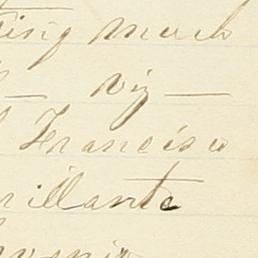 ting much
— viz —
Francisco
rillante